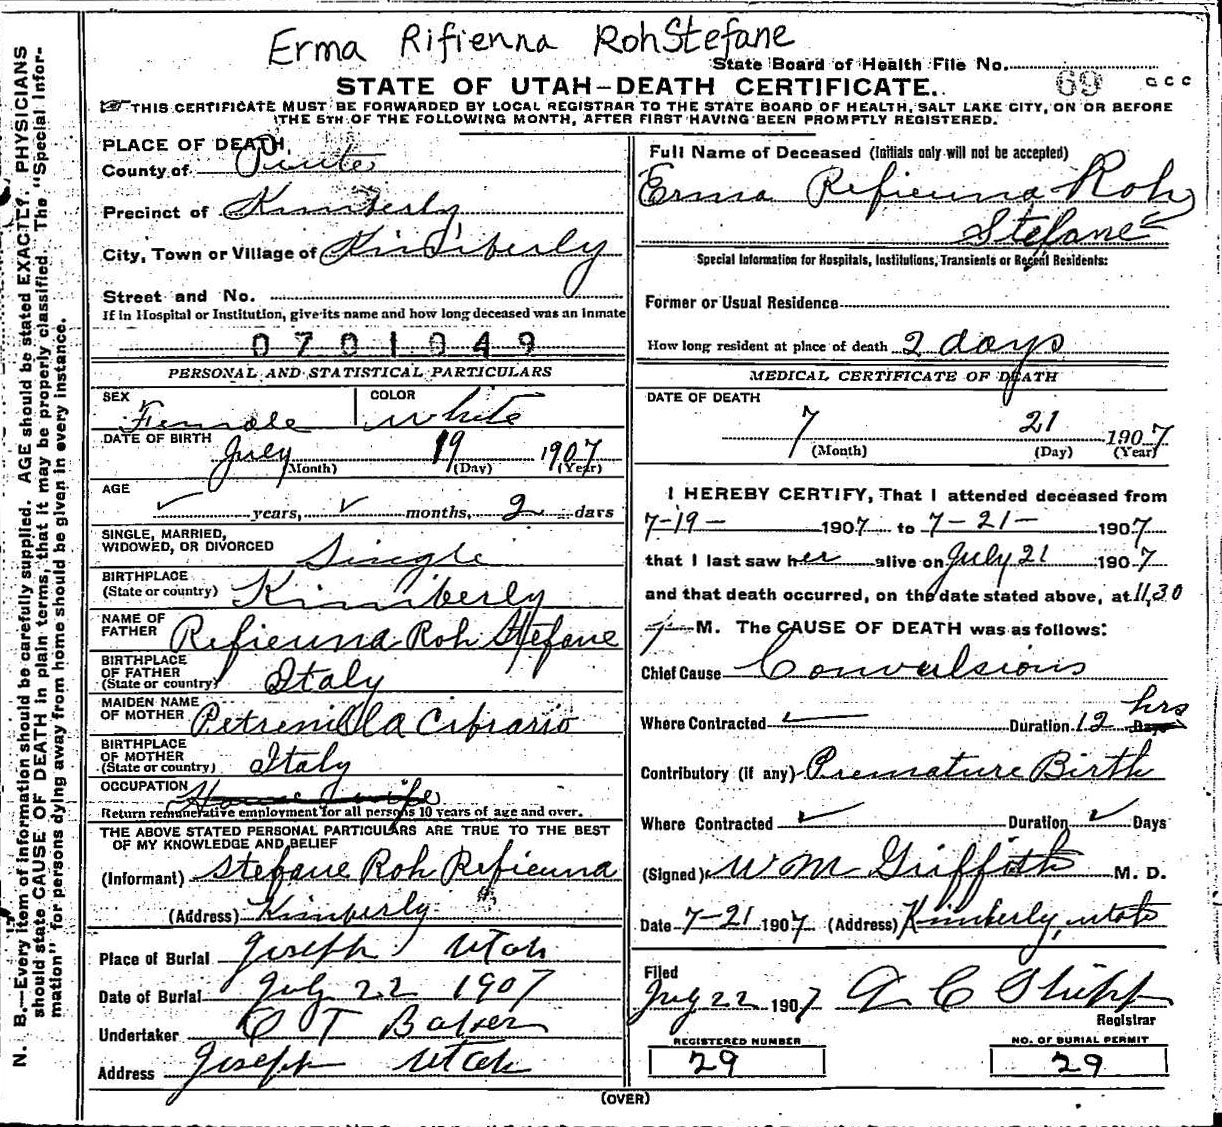 Erma Rifienna RohStefane
State Board of Health File No. 69 ccc
STATE OF UTAH-DEATH CERTIFICATE.
THIS CERTIFICATE MUST BE FORWARDED BY LOCAL REGISTRAR TO THE STATE BOARD OF HEALTH, SALT LAKE CITY, ON OR BEFORE
THE 5TH OF THE FOLLOWING MONTH, AFTER FIRST HAVING BEEN PROMPTLY REGISTERED.
N. B.—Every item of information should be carefully supplied. AGE should be stated EXACTLY. PHYSICIANS
should state CAUSE OF DEATH in plain terms, that it may be properly classified. The "Special Infor-
mation" for persons dying away from home should be given in every instance.
PLACE OF DEATH,
County of Piute
Precinct of Kimberly
City, Town or Village of Kimberly
Street and No.
If in Hospital or Institution, give its name and how long deceased was an inmate
0701049
PERSONAL AND STATISTICAL PARTICULARS
SEX Female COLOR White
DATE OF BIRTH July 19 1907
(Month) (Day) (Year)
AGE
years, months, 2 days
SINGLE, MARRIED,
WIDOWED, OR DIVORCED Single
BIRTHPLACE
(State or country) Kimberly
NAME OF
FATHER Refienna Roh Stefane
BIRTHPLACE
OF FATHER
(State or country) Italy
MAIDEN NAME
OF MOTHER Petrenilla Cibrario
BIRTHPLACE
OF MOTHER
(State or country) Italy
OCCUPATION House Wife
Return remunerative employment for all persons 10 years of age and over.
THE ABOVE STATED PERSONAL PARTICULARS ARE TRUE TO THE BEST
OF MY KNOWLEDGE AND BELIEF
(Informant) Stefane Roh Refienna
(Address) Kimberly
Place of Burial Joseph Utah
Date of Burial July 22 1907
Undertaker O T Baker
Address Joseph Utah
Full Name of Deceased (Initials only will not be accepted)
Erma Refienna Roh
Stefane
Special Information for Hospitals, Institutions, Transients or Recent Residents:
Former or Usual Residence
How long resident at place of death 2 days
MEDICAL CERTIFICATE OF DEATH
DATE OF DEATH
7 21 1907
(Month) (Day) (Year)
I HEREBY CERTIFY, That I attended deceased from
7-19- 1907 to 7-21- 1907
that I last saw her alive on July 21 1907
and that death occurred, on the date stated above, at 11,30
M. The CAUSE OF DEATH was as follows:
Chief Cause Convulsions
Where Contracted Duration 12 Days hrs
Contributory (if any) Premature Birth
Where Contracted Duration Days
(Signed) W M Griffith M. D.
Date 7-21 1907 (Address) Kimberly, Utah
Filed
July 22 1907 C Shipp
Registrar
REGISTERED NUMBER NO. OF BURIAL PERMIT
29 29
(OVER)